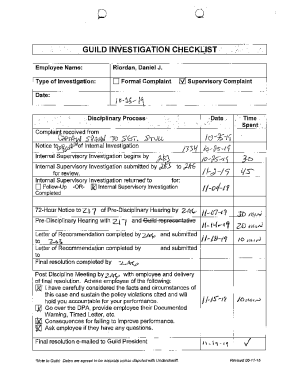 GUILD INVESTIGATION CHECKLIST
Employee Name: Riordan, Daniel J.
Type of Investigation: Formal Complaint Supervisory Complaint
Date: 10-25-19
Disciplinary Process Date Time Spent
Complaint received from TO SGT. 10-25-19
Notice to of Internal Investigation 1334 10-25-19
Internal Supervisory Investigation begins by 10-25-19 30
Internal Supervisory Investigation submitted by to 2A6 for review. 11-2-19 45
Internal Supervisory Investigation returned to for:
Follow-Up -OR- Internal Supervisory Investigation Completed 11-04-19
72-Hour Notice to 217 of Pre-Disciplinary Hearing by 2A6 11-07-19 30 min
Pre-Disciplinary Hearing with 217 and Guild representative 11-14-19 20 min
Letter of Recommendation completed by 2A6 and submitted to 11-18-19 10 min
Letter of Recommendation completed by and submitted to
Final resolution completed by 2A6
Post Discipline Meeting by 2A6 with employee and delivery
of final resolution. Advise employee of the following:
I have carefully considered the facts and circumstances of
this case and sustain the policy violations cited and will
hold you accountable for your performance.
Go over the DPA, provide employee their Documented
Warning, Timed Letter, etc
Consequences for failing to improve performance.
Ask employee if they have any questions.
11-15-19 10 min
Final resolution e-mailed to Guild President 11-19-19
*Note to Guild: Dates are agreed to be accurate unless disputed with Undersheriff
Revised